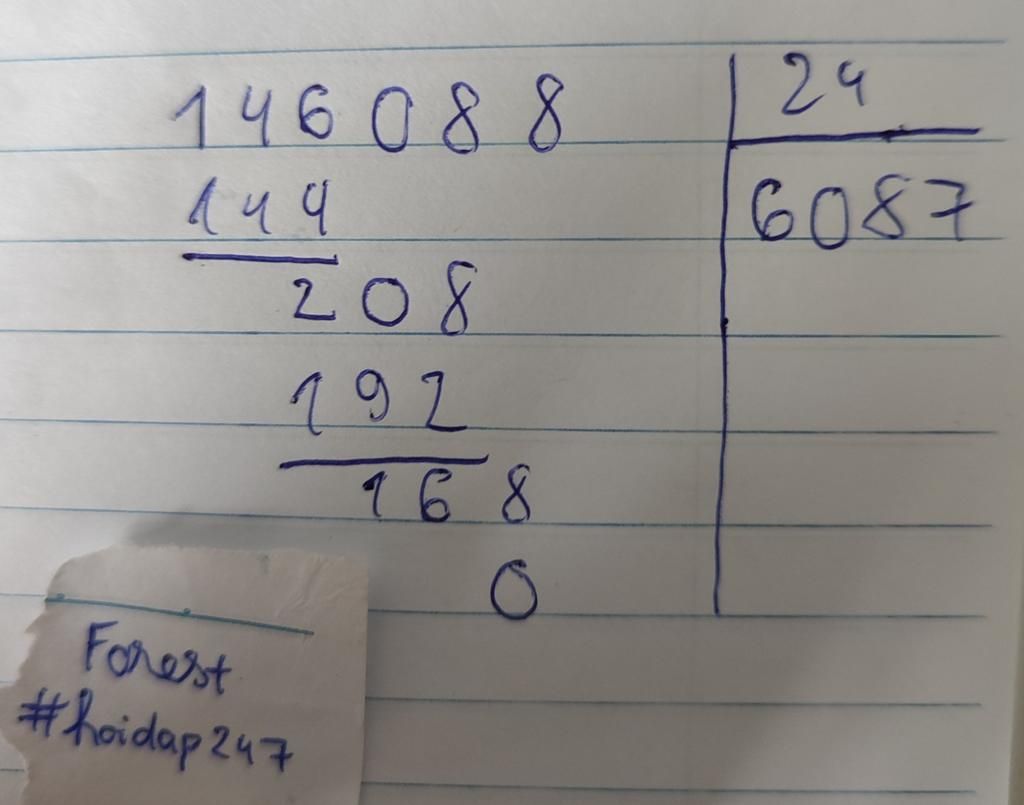 146088 24
144 6087
208
192
168
0
Forest
#hoidap247